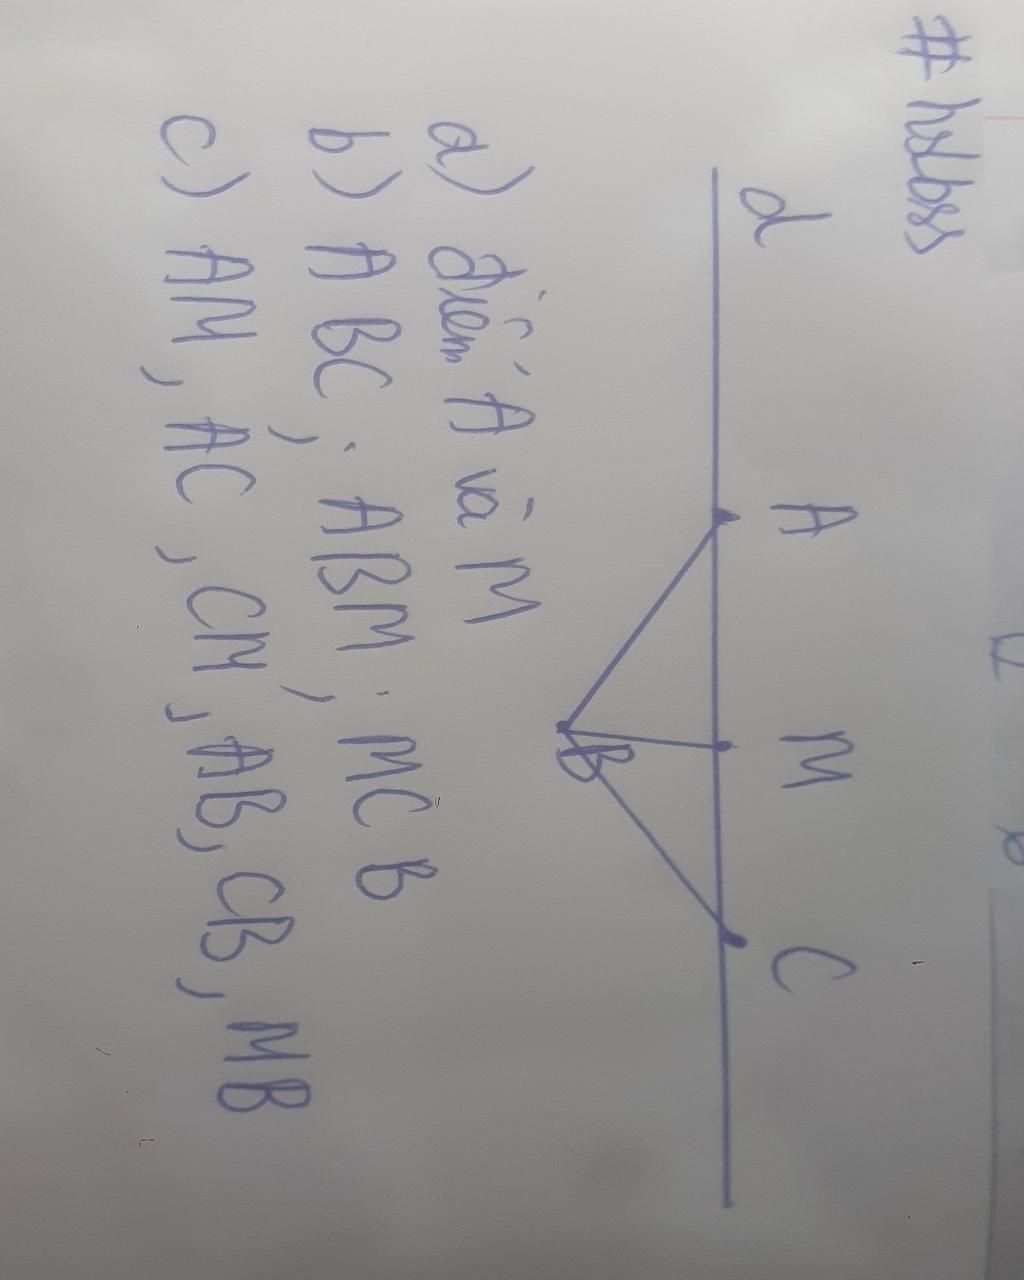 #hslbss
d A M C
B
a) điểm A và M
b) A BC ; ABM ; MC B
c) AM, AC, CM, AB, CB, MB